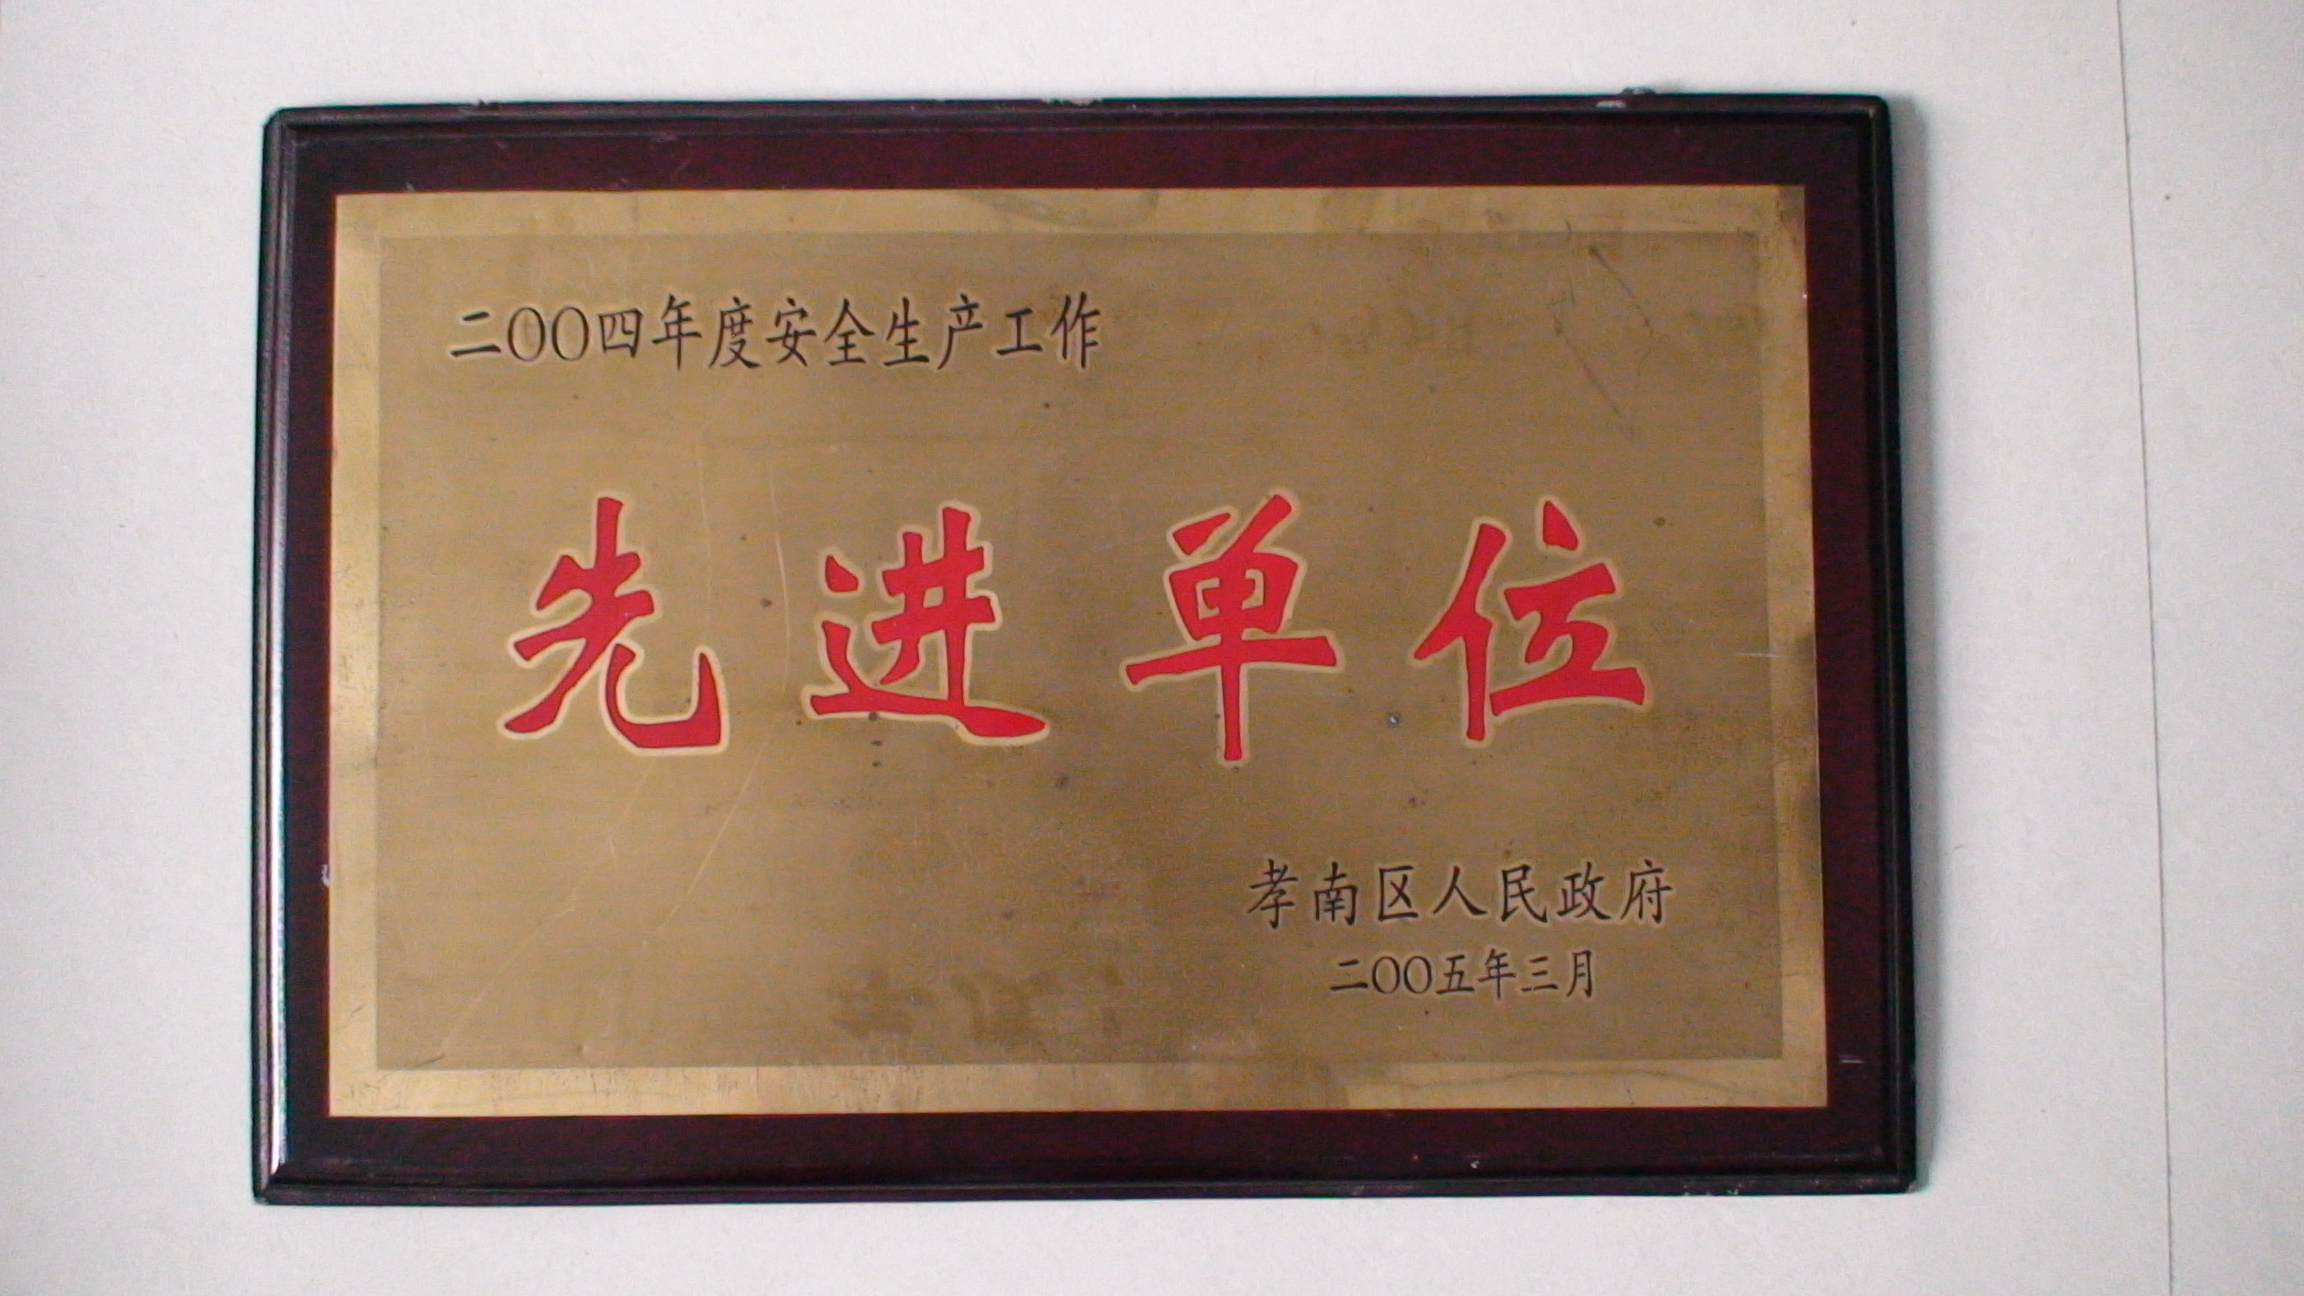 二〇〇四年度安全生产工作
先进单位
孝南区人民政府
二〇〇五年三月